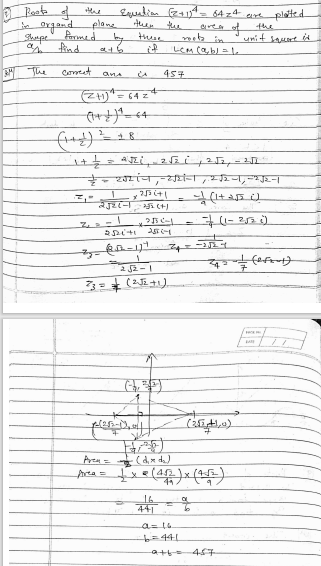 Roots of the Equation (z+1)⁴ = 64z⁴ are ploted
in argand plane then the area of the
shape formed by these roots in unit square is
a/b find a+b if LCM(a,b)=1.
The correct ans is 457
(z+1)⁴ = 64z⁴
(1+1/z)⁴ = 64
(1+1/z)² = ±8
1+1/z = 2√2i, -2√2i, 2√2, -2√2
1/z = 2√2i-1, -2√2i-1, 2√2-1, -2√2-1
z₁ = 1/(2√2i-1) × (2√2i+1)/(2√2i+1) = -1/9 (1+2√2i)
z₂ = -1/(2√2i+1) × (2√2i-1)/(2√2i-1) = -1/9 (1-2√2i)
z₃ = (2√2-1)⁻¹ z₄ = 1/(-2√2-1)
= 1/(2√2-1) z₄ = -1/7 (2√2-1)
z₃ = 1/7 (2√2+1)
DATE
Area = 1/2 (d₁×d₂)
Area = 1/2 × (4√2/49) × (4√2/9)
= 16/441 = a/b
a = 16
b = 441
a+b = 457